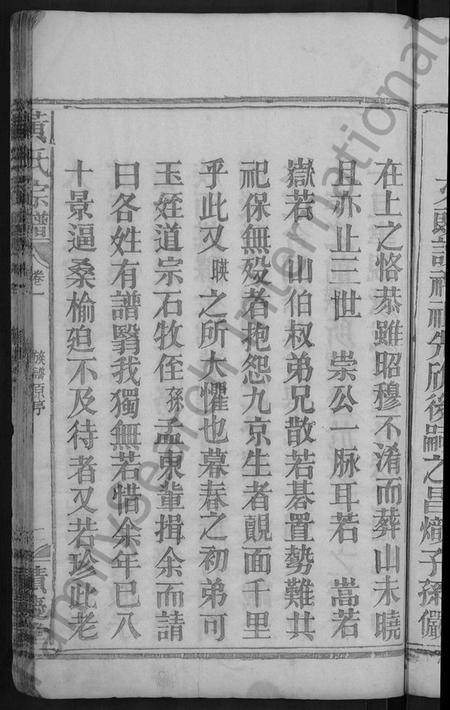 父顯諸祖祖先欣後嗣之昌熾子孫儼
在上之恪恭雖昭穆不淆而葬山未曉
且亦止三世 崇公一脉耳若 嵩若
嶽若 山伯叔弟兄散若碁置勢難共
祀保無歿者抱怨九京生者覿面千里
乎此又暎之所大懼也暮春之初弟可
玉姪道宗石牧侄孫孟東輩揖余而請
曰各姓有譜翳我獨無若惜余年已八
十景逼桑榆廹不及待者又若珍此老
黃氏宗譜 卷一 族譜原序
FamilySearch International